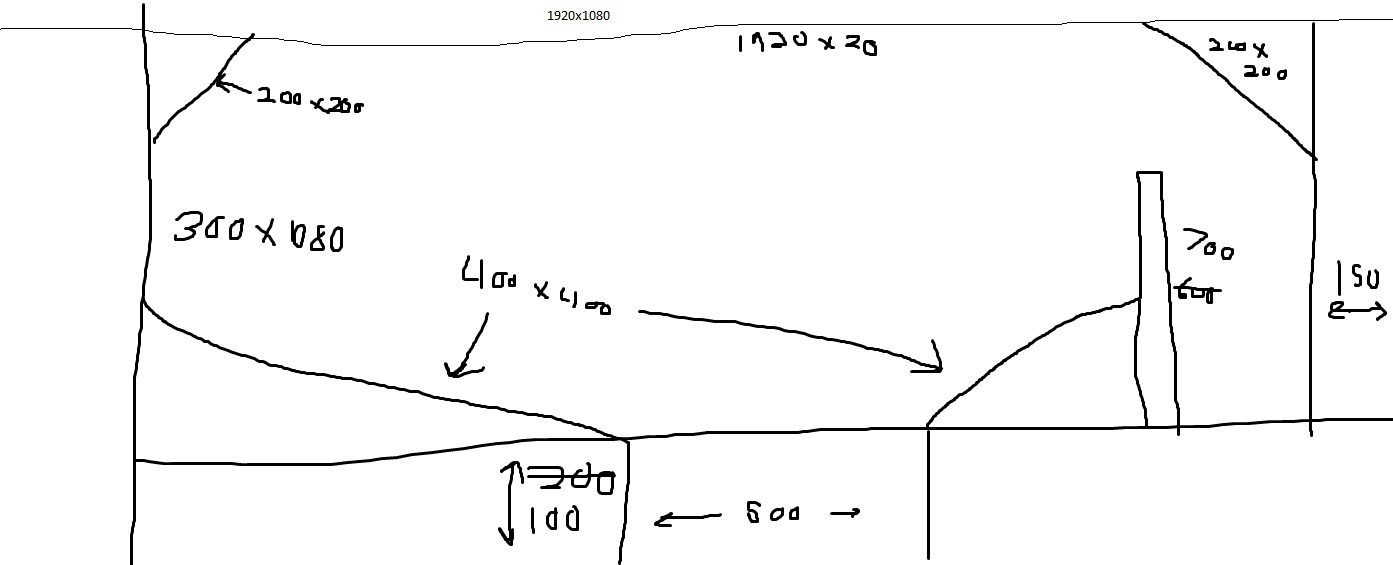 1920x1080
1920 x 20
200 x
200
200 x 200
300 x 1080
700
400 x 400
600
150
200
100
500